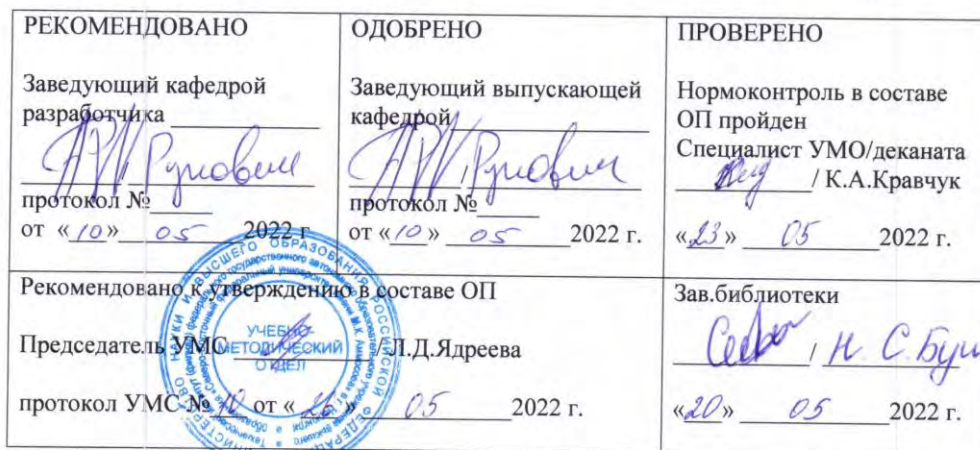 РЕКОМЕНДОВАНО
Заведующий кафедрой
разработчика
протокол №
от «10» 05 2022 г.
ОДОБРЕНО
Заведующий выпускающей
кафедрой
протокол №
от «10» 05 2022 г.
ПРОВЕРЕНО
Нормоконтроль в составе
ОП пройден
Специалист УМО/деканата
/ К.А.Кравчук
«23» 05 2022 г.
Рекомендовано к утверждению в составе ОП
Председатель УМС Л.Д.Ядреева
протокол УМС № 10 от «26» 05 2022 г.
УЧЕБНО-
МЕТОДИЧЕСКИЙ
ОТДЕЛ
Зав.библиотеки
/ Н. С.
«20» 05 2022 г.